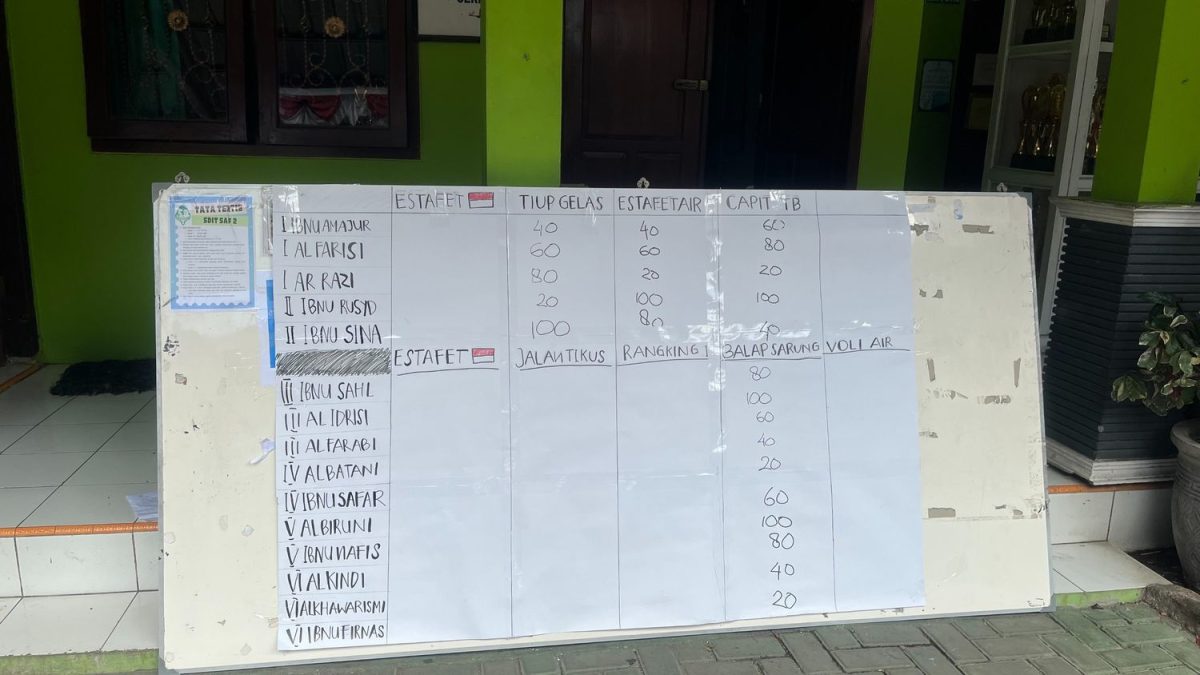 TATA TERTIB
SDIT SAF 2
ESTAFET TIUP GELAS ESTAFET AIR CAPIT TB
I IBNU AMAJUR 40 40 60
I ALFARISI 60 60 80
I AR RAZI 80 20 20
II IBNU RUSYD 20 100 100
II IBNU SINA 100 80 40
ESTAFET JALAN TIKUS RANGKING 1 BALAP SARUNG VOLI AIR
III IBNU SAHL 80
III AL IDRISI 100
III ALFARABI 60
IV ALBATANI 40
IV IBNU SAFAR 20
V ALBIRUNI 60
V IBNU NAFIS 100
VI ALKINDI 80
VI ALKHAWARISMI 40
VI IBNU FIRNAS 20